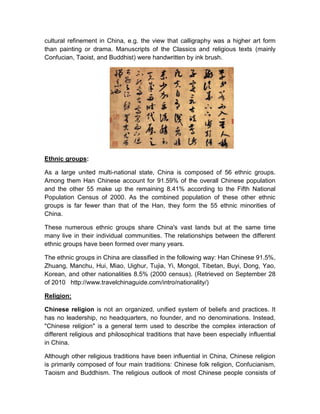 cultural refinement in China, e.g. the view that calligraphy was a higher art form
than painting or drama. Manuscripts of the Classics and religious texts (mainly
Confucian, Taoist, and Buddhist) were handwritten by ink brush.
Ethnic groups:
As a large united multi-national state, China is composed of 56 ethnic groups.
Among them Han Chinese account for 91.59% of the overall Chinese population
and the other 55 make up the remaining 8.41% according to the Fifth National
Population Census of 2000. As the combined population of these other ethnic
groups is far fewer than that of the Han, they form the 55 ethnic minorities of
China.
These numerous ethnic groups share China's vast lands but at the same time
many live in their individual communities. The relationships between the different
ethnic groups have been formed over many years.
The ethnic groups in China are classified in the following way: Han Chinese 91.5%,
Zhuang, Manchu, Hui, Miao, Uighur, Tujia, Yi, Mongol, Tibetan, Buyi, Dong, Yao,
Korean, and other nationalities 8.5% (2000 census). (Retrieved on September 28
of 2010 http://www.travelchinaguide.com/intro/nationality/)
Religion:
Chinese religion is not an organized, unified system of beliefs and practices. It
has no leadership, no headquarters, no founder, and no denominations. Instead,
"Chinese religion" is a general term used to describe the complex interaction of
different religious and philosophical traditions that have been especially influential
in China.
Although other religious traditions have been influential in China, Chinese religion
is primarily composed of four main traditions: Chinese folk religion, Confucianism,
Taoism and Buddhism. The religious outlook of most Chinese people consists of